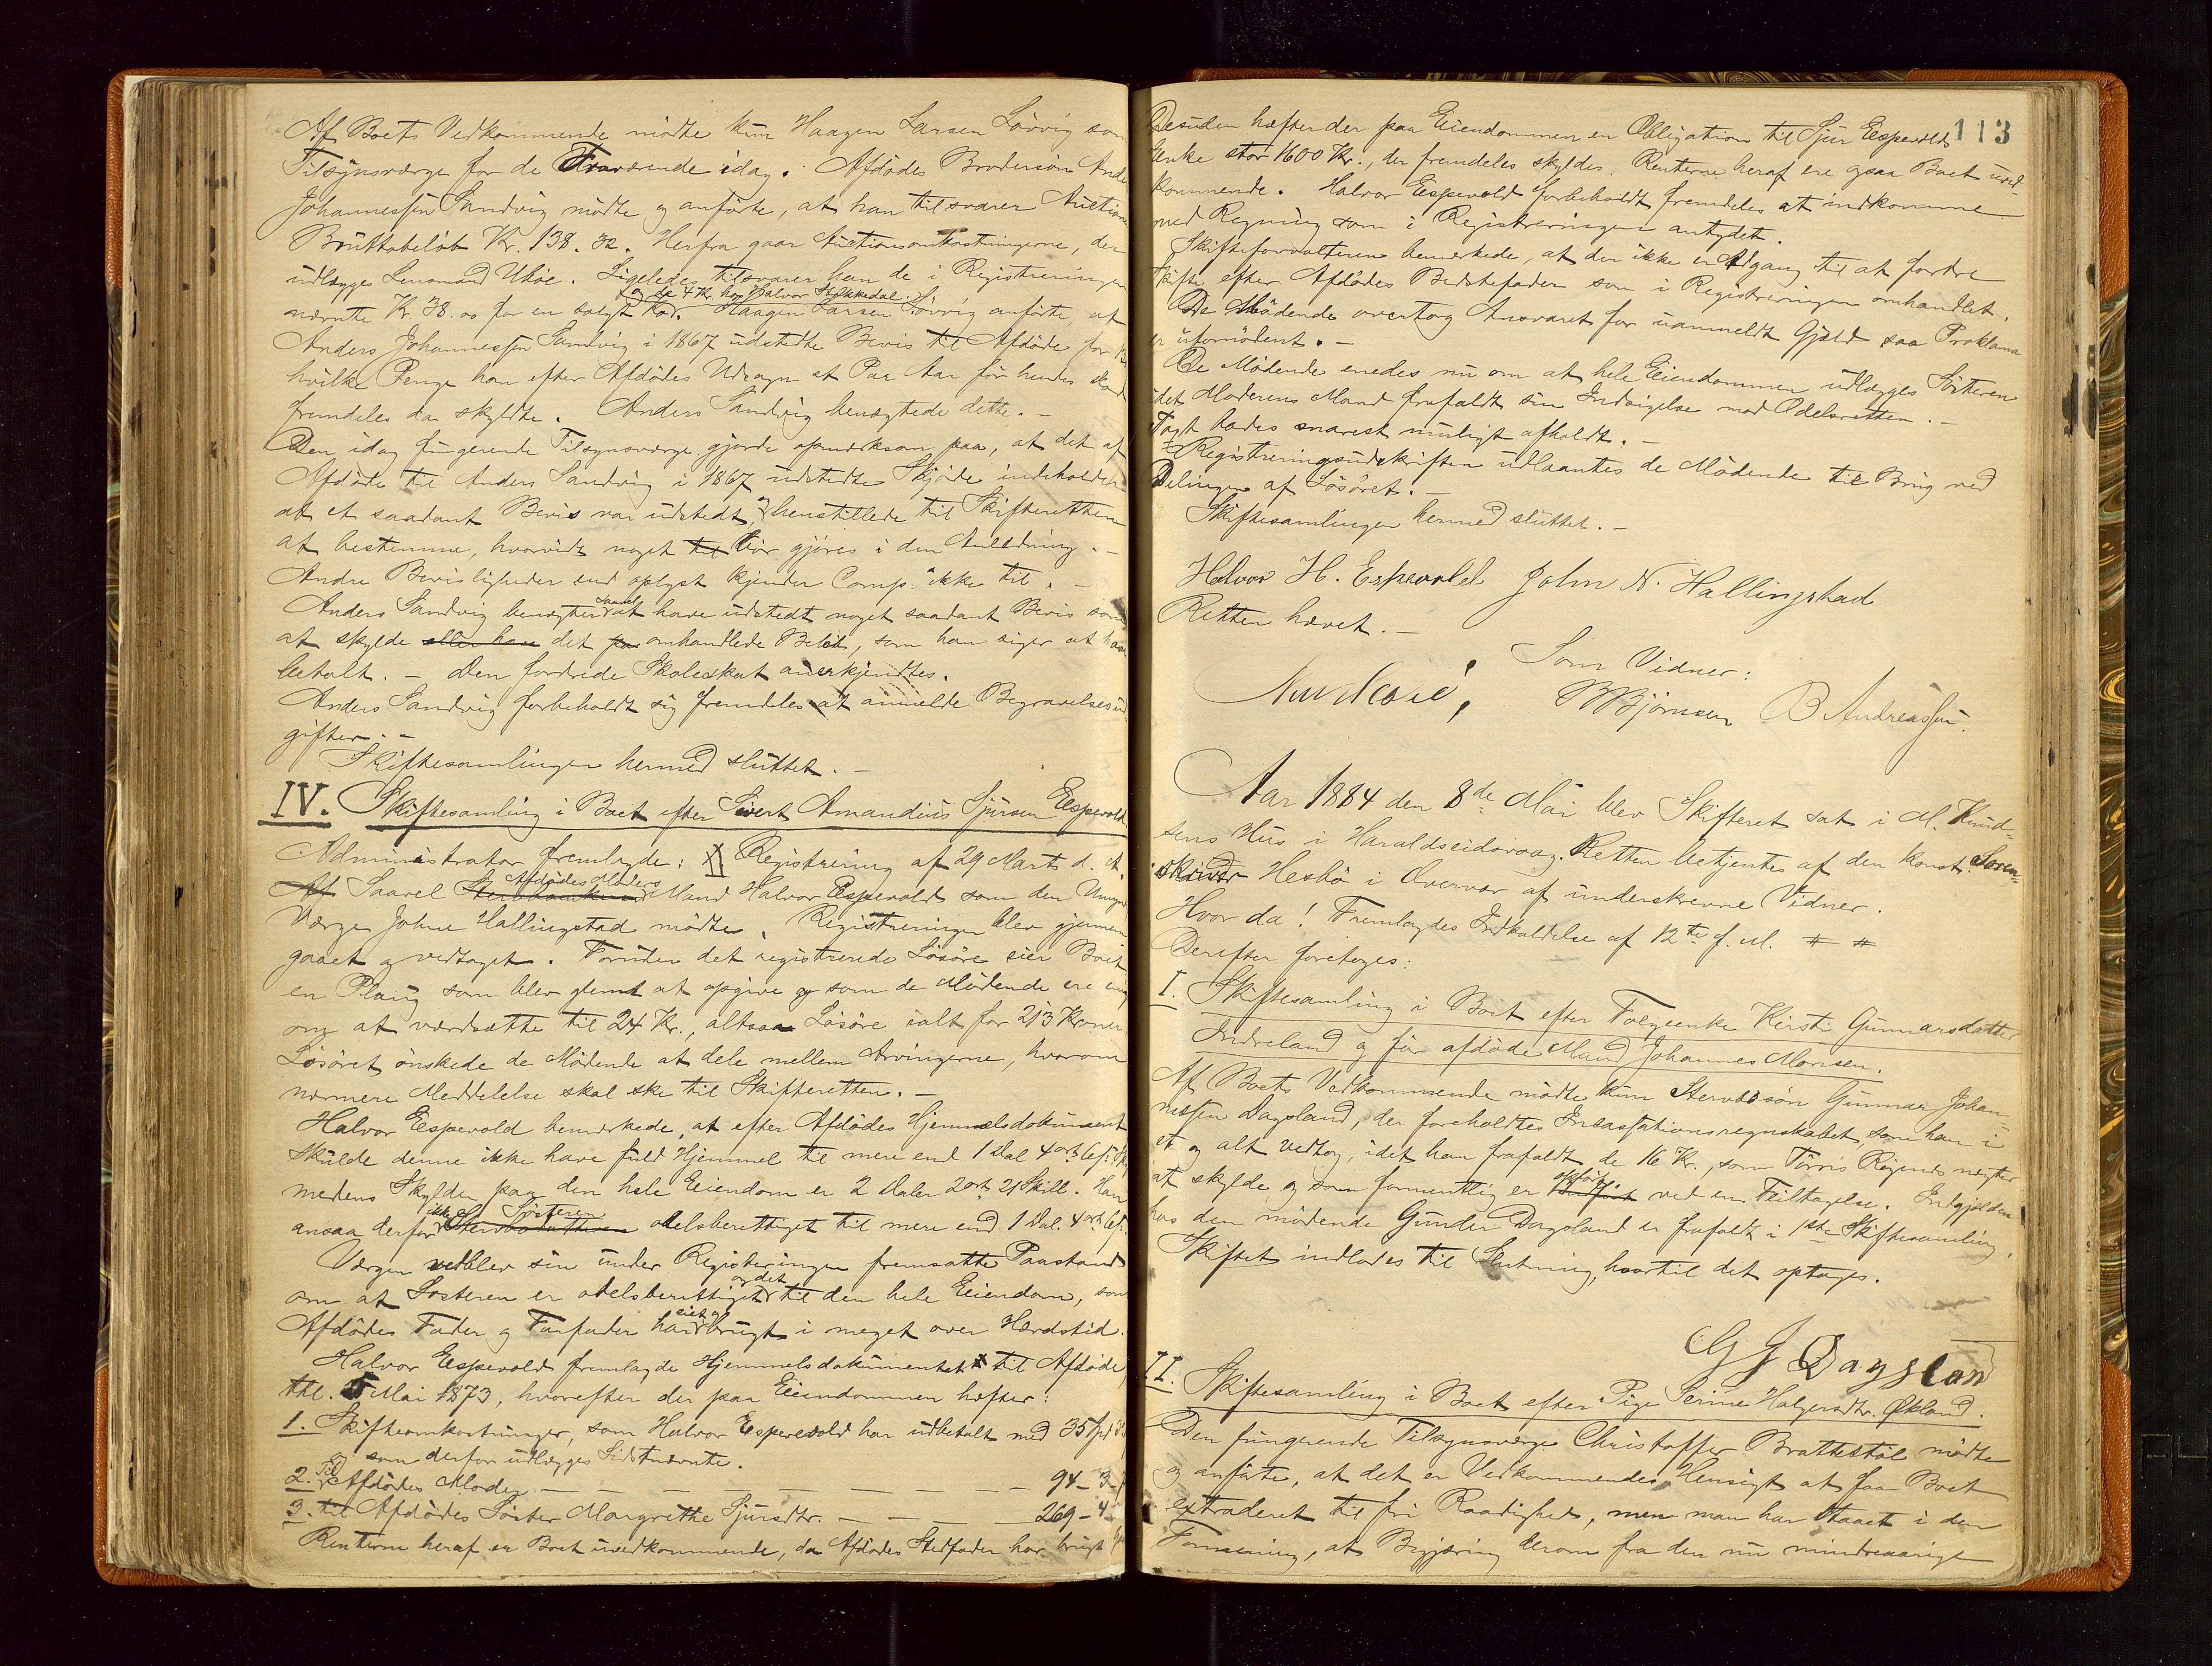 Af Boets Vedkommende mödte kun Haagen Larsen Lövvig som
Tilsynsværge for de Fraværende idag. Afdödes Brodersön Ande
Johannessen Sandvig mödte og anförte, at han tilsvarer Auctions
Bruttobelöb Kr. 138. 32. Herfra gaar Auctionsomkostningerne, der
udlægges Lensmand Uhöe. Ligeledes tilsvarer han de i Registreringen
og de 4 Kr. hos Halvor Stokkedal.
nævnte Kr. 38.00 for en solgt Ko. Haagen Larsen Lövvig anförte, at
Anders Johannessen Sandvig i 1867 udstedte Bevis til Afdöde for
hvilke Penge han efter Afdödes Udsagn et Par Aar för hendes död
fremdeles da skyldte. Anders Sandvig benægtede dette. -
Den idag fungerende Tilsynsværge gjorde opmærksom paa, at det af
Afdöde til Anders Sandvig i 1867 udstedte Skjöde indeholder
at et saadant Bevis var udstedt, og henstillede til Skifteretten
at bestemme, hvorvidt noget til bör gjöres i den Anledning. -
Andre Bevisligheder end oplyst kjender Comp. ikke til. -
Anders Sandvig benægter saavel at have udstedt noget saadant Bevis som
at skylde eller have det paa omhandlede Belöb, som han siger at have
betalt. - Den fordrede Skoleskat anerkjendtes.
Anders Sandvig forbeholdt sig fremdeles at anmelde Begravelsesud-
gifter. -
Skiftesamlingen hermed sluttet. -
IV. Skiftesamling i Boet efter Sivert Amandius Sjursen Espevold.
Administrator fremlagde: Registrering af 29 Marts d. A.
Afdödes Moders
Af Saavel Mand Halvor Espevold som den Umynd
Værge Johne Hallingstad mödte. Registreringen blev gjennem
gaaet og vedtaget. Foruden det registrerede Lösöre eier Boet
en Ploug som blev glemt at opgive og som de Mödende ere enig
om at værdsætte til 24 Kr., altsaa Lösöre ialt for 213 Kroner
Lösöret önskede de Mödende at dele mellem Arvingerne, hvorom
nærmere Meddelelse skal ske til Skifteretten. -
Halvor Espevold bemærkede, at efter Afdödes Hjemmelsdokument
skulde denne ikke have fuld Hjemmel til mere end 1 Dal 4 ort 6 s.
medens Skylden paa den hele Eiendom er 2 Daler 2 ort 21 Skill. Han
ikke Söstren
ansaa derfor odelsberettiget til mere end 1 Dal. 4 ort 6 s.
Værgen vedblev sin under Registeringen fremsatte Paastand
om at Sösteren er odelsberettiget til den hele Eiendom, som
eiet og
Afdödes Fader og Farfader har brugt i meget over Hævdstid.
Halvor Espevold fremlagde Hjemmelsdokumentet til Afdöde
thl. 5 Mai 1873, hvorefter der paa Eiendommen hefter:
1. Skifteomkostninger, som Halvor Espevold har udbetalt med 35 Spd
og som derfor udlægges Sidstnævnte.
2. Til Afdödes Moder — — — — — — 94 - 3 -
3. til Afdödes Söster Margrethe Sjursdtr. — — — — 269 - 4 -
Renterne heraf er Boet uvedkommende, da Afdödes Stedfader har brugt
113
Desuden hefter der paa Eiendommen en Obligation til Sjur Espevolds
Enke stor 1600 Kr., der fremdeles skyldes. Renterne heraf ere ogsaa Boet uved-
kommende. Halvor Espevold forbeholdt fremdeles at indkomme
med Regning som i Registreringen antydet.
Skifteforvalteren bemærkede, at der ikke er Adgang til at fordre
Skifte efter Afdödes Bedstefader som i Registreringen omhandlet.
De Mödende overtog Ansvaret for uanmeldt Gjæld saa Proklama
er ufornödent. -
De Mödende enedes nu om at hele Eiendommen udlægges Sösteren
idet Moderens Mand frafaldt sin Indsigelse mod Odelsretten. -
Tagt bades snarest muligt afholdt. -
Registreringsudskriften udlaantes de Mödende til Brug ved
Delingen af Lösöret. -
Skiftesamlingen hermed sluttet. -
Halvor H. Espevold John N. Hallingstad
Retten hævet. -
Som Vidner:
BBjörnsen B Andreassen.
Aar 1884 den 8de Mai blev Skifteret sat i M. Knud-
sens Hus i Haraldseidsvaag. Retten betjentes af den konst. Soren-
skriver Hesbö i Overvær af underskrevne Vidner.
Hvor da! Fremlagdes Indkaldelse af 12te f. M. # #
Derefter foretoges:
I. Skiftesamling i Boet efter Folgeenke Kirsti Gunnarsdatter
Indreland og för afdöde Mand Johannes Monsen.
Af Boets Vedkommende mödte kun Stervbosön Gunnar Johan-
nessen Dagsland, der foreholdtes Incassationsregnskabet, som han i
et og alt vedtog, idet han frafaldt de 16 Kr., som Törris Röiends nægter
opfört
at skylde og som formentlig er ved en Feiltagelse. Indgjælden
hos den mödende Gunder Dagsland er frafaldt i 1ste Skiftesamling.
Skiftet indlodes til Slutning, hvortil det optages.
G J Dagslan
II. Skiftesamling i Boet efter Pige Serine Halgersdtr. Økland.
Den fungerende Tilsynsværge Christoffer Brattestöl mödte
og anförte, at det er Vedkommendes Hensigt at faa Boet
extraderet til fri Raadighed, men man har staaet i den
Formening, at Begjæring derom fra den nu mindreaarige